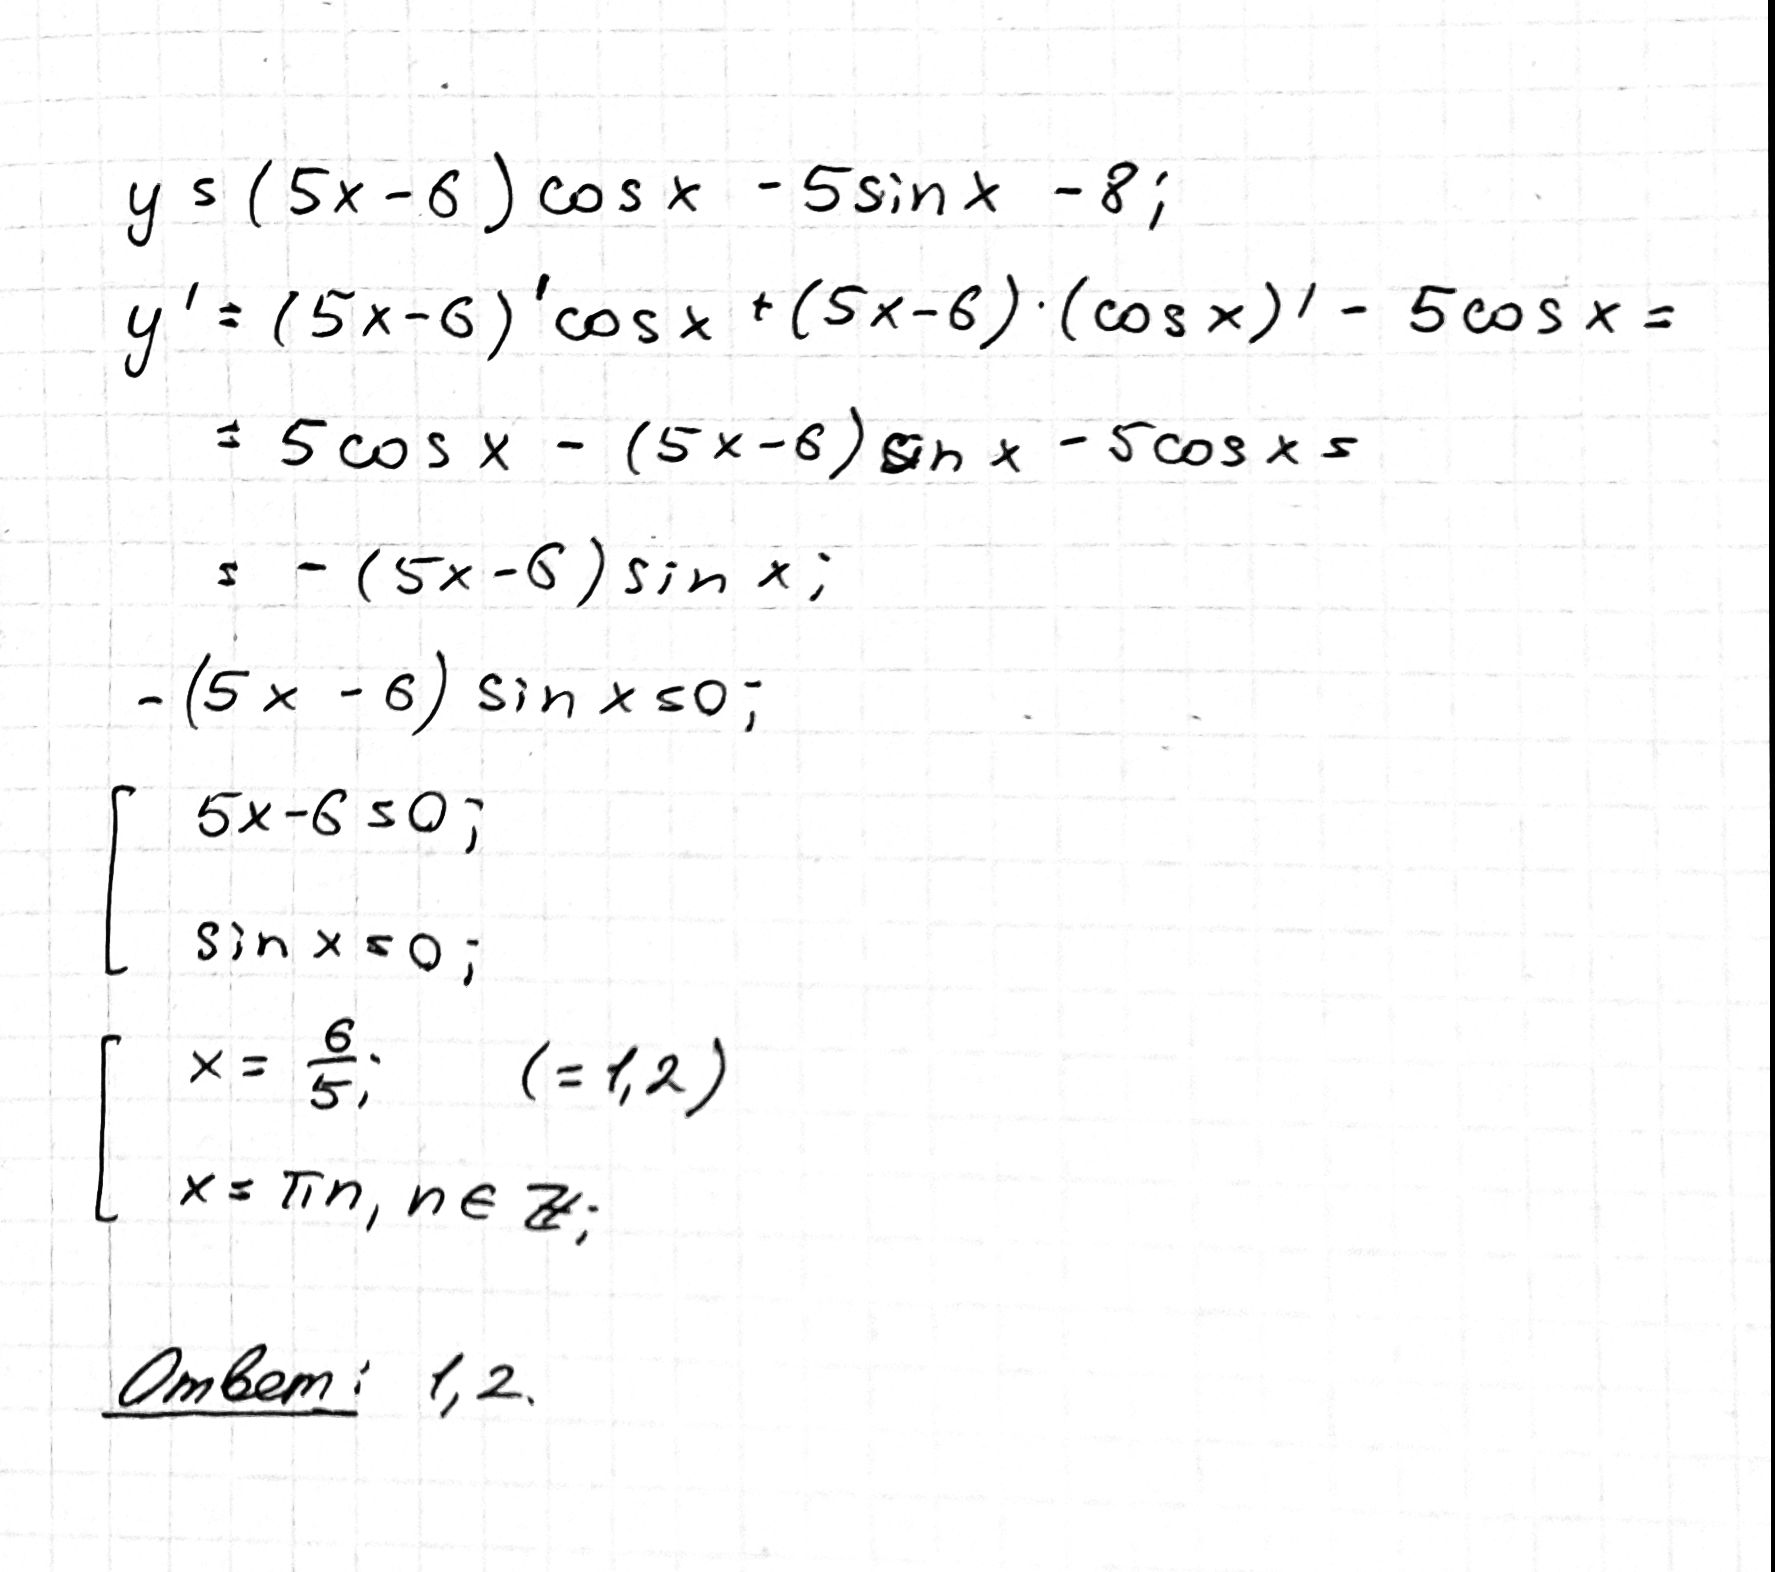 y = (5x-6) cos x - 5 sin x - 8;
y' = (5x-6)' cos x + (5x-6)·(cos x)' - 5 cos x =
= 5 cos x - (5x-6) sin x - 5 cos x =
= -(5x-6) sin x;
-(5x-6) sin x = 0;
5x-6 = 0;
sin x = 0;
x = 6/5; (= 1,2)
x = πn, n ∈ ℤ;
Ответ: 1,2.